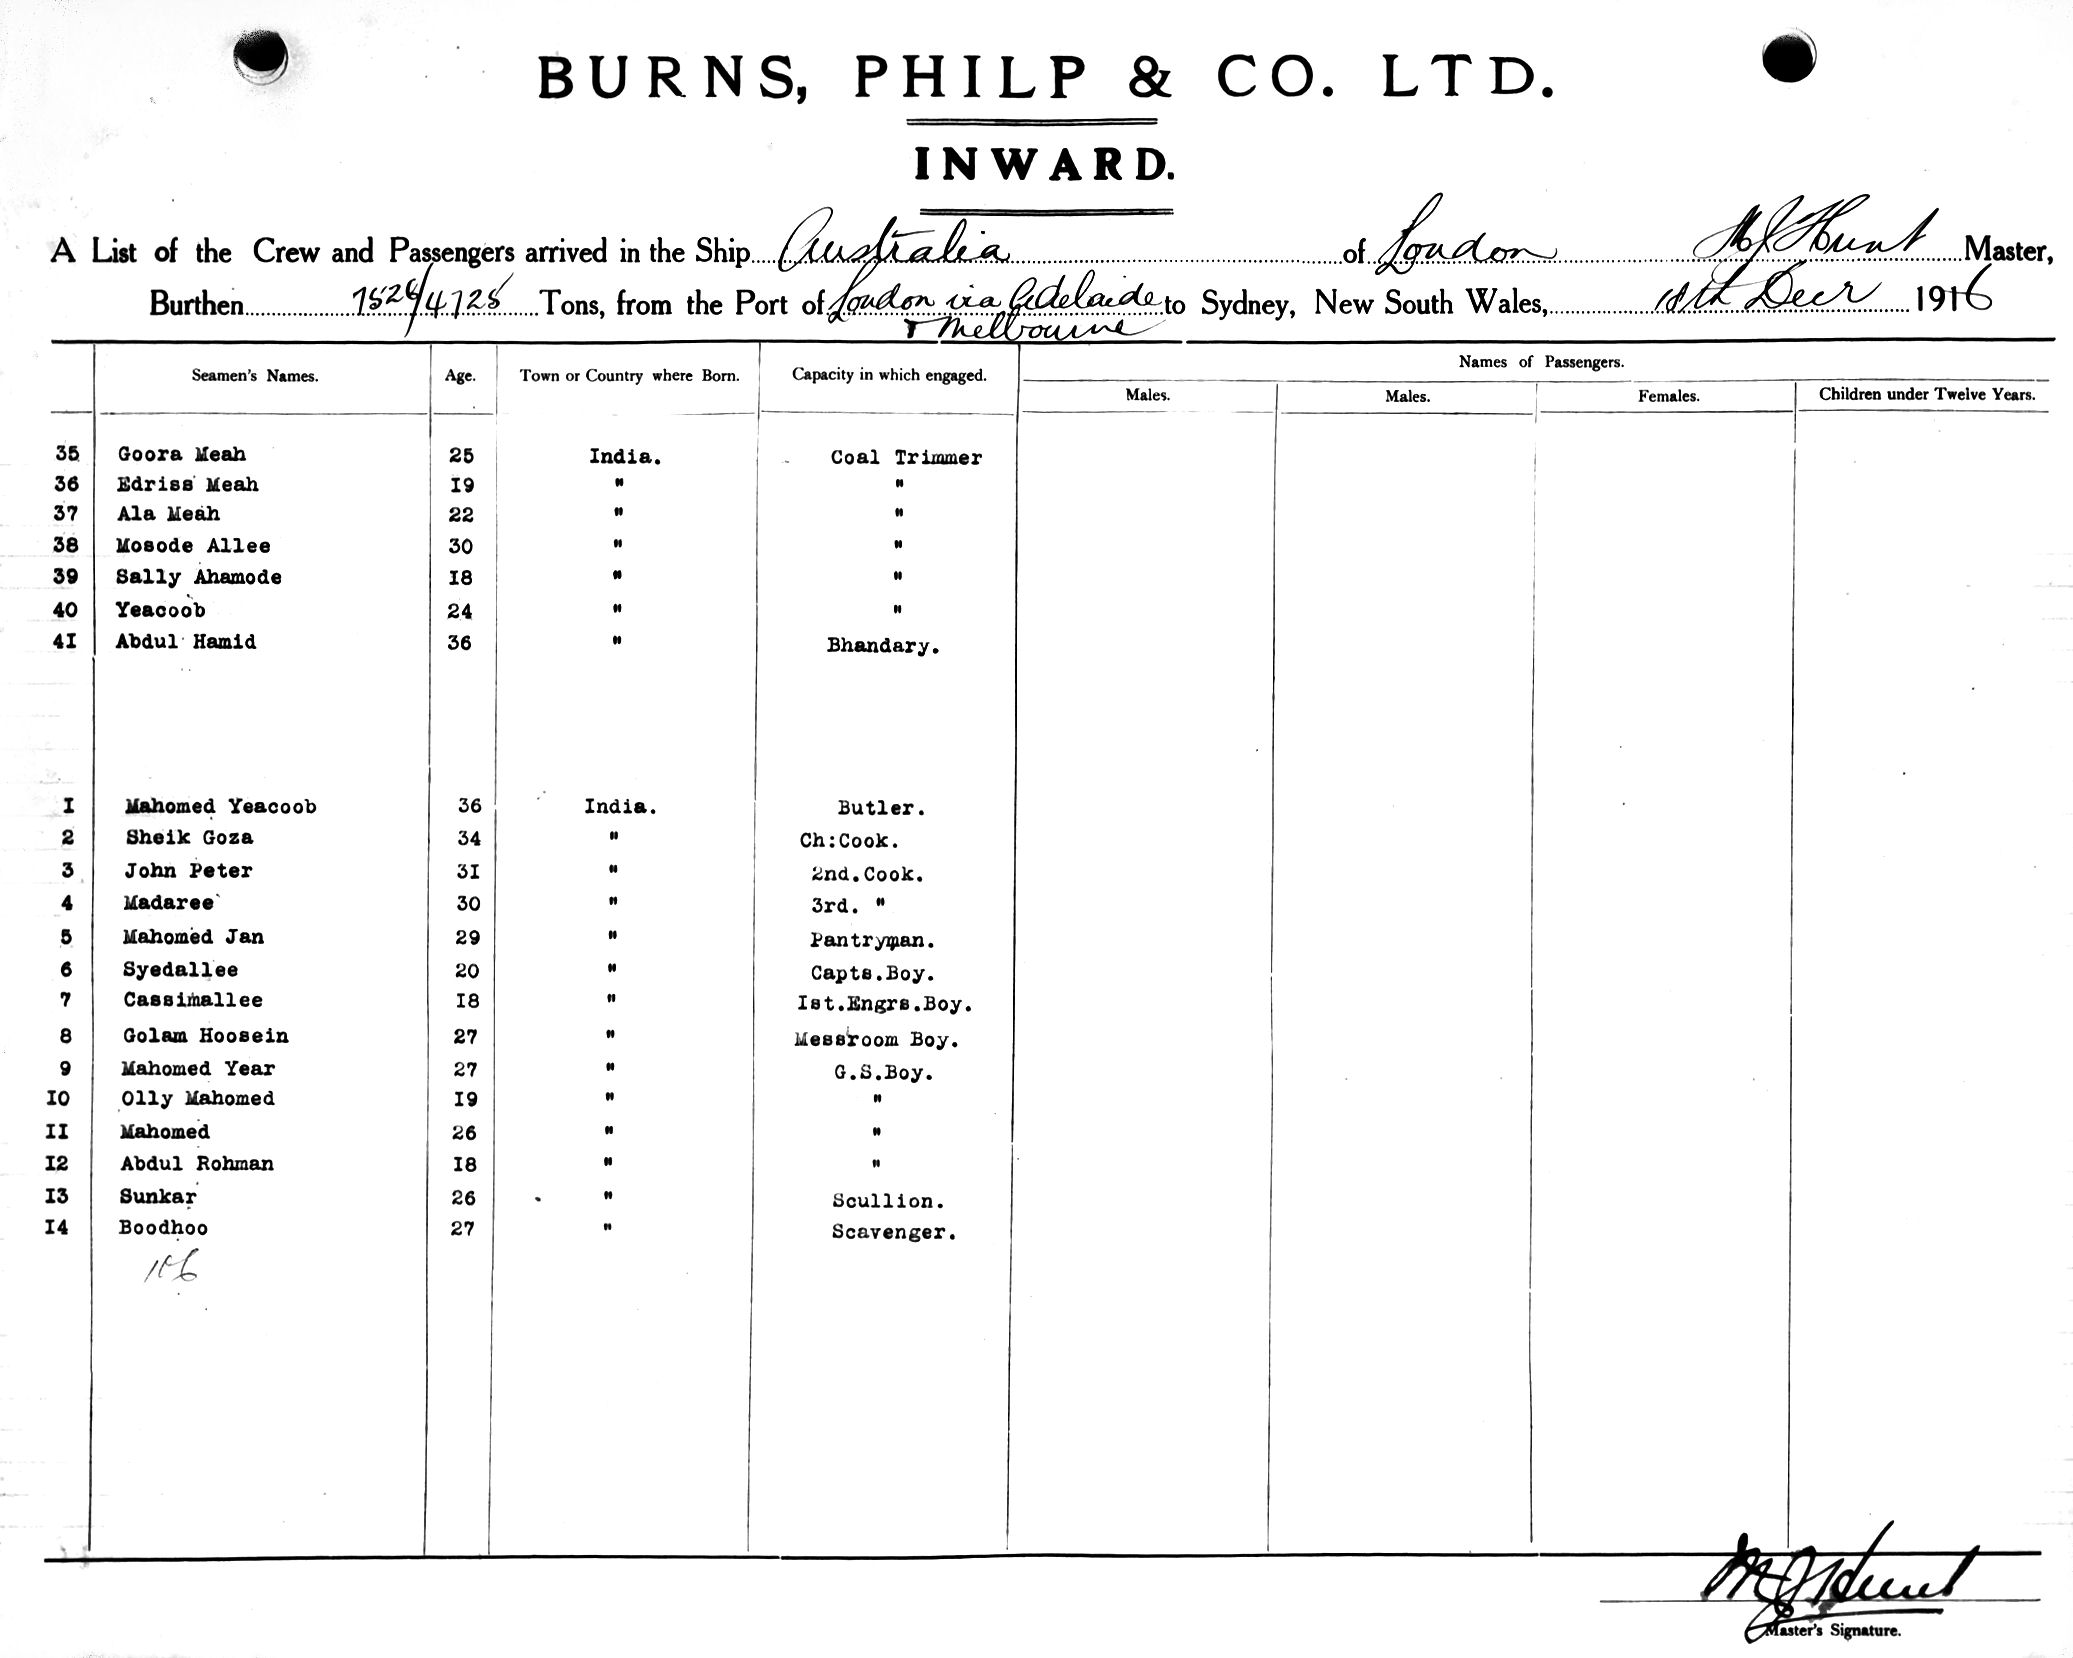 BURNS, PHILP & CO. LTD.
INWARD.
A List of the Crew and Passengers arrived in the Ship Australia of London M J Hunt Master,
Burthen 7526/4725 Tons, from the Port of London via Adelaide to Sydney, New South Wales, 18th Decr 1916
& Melbourne
Seamen's Names. Age. Town or Country where Born. Capacity in which engaged. Names of Passengers.
Males. Males. Females. Children under Twelve Years.
35 Goora Meah 25 India. Coal Trimmer
36 Edriss Meah I9 " "
37 Ala Meah 22 " "
38 Mosode Allee 30 " "
39 Sally Ahamode I8 " "
40 Yeacoob 24 " "
4I Abdul Hamid 36 " Bhandary.
I Mahomed Yeacoob 36 India. Butler.
2 Sheik Goza 34 " Ch:Cook.
3 John Peter 3I " 2nd.Cook.
4 Madaree 30 " 3rd. "
5 Mahomed Jan 29 " Pantryman.
6 Syedallee 20 " Capts.Boy.
7 Cassimallee I8 " Ist.Engrs.Boy.
8 Golam Hoosein 27 " Messroom Boy.
9 Mahomed Year 27 " G.S.Boy.
IO Olly Mahomed I9 " "
II Mahomed 26 " "
I2 Abdul Rohman I8 " "
I3 Sunkar 26 " Scullion.
I4 Boodhoo 27 " Scavenger.
106
M J Hunt
Master's Signature.